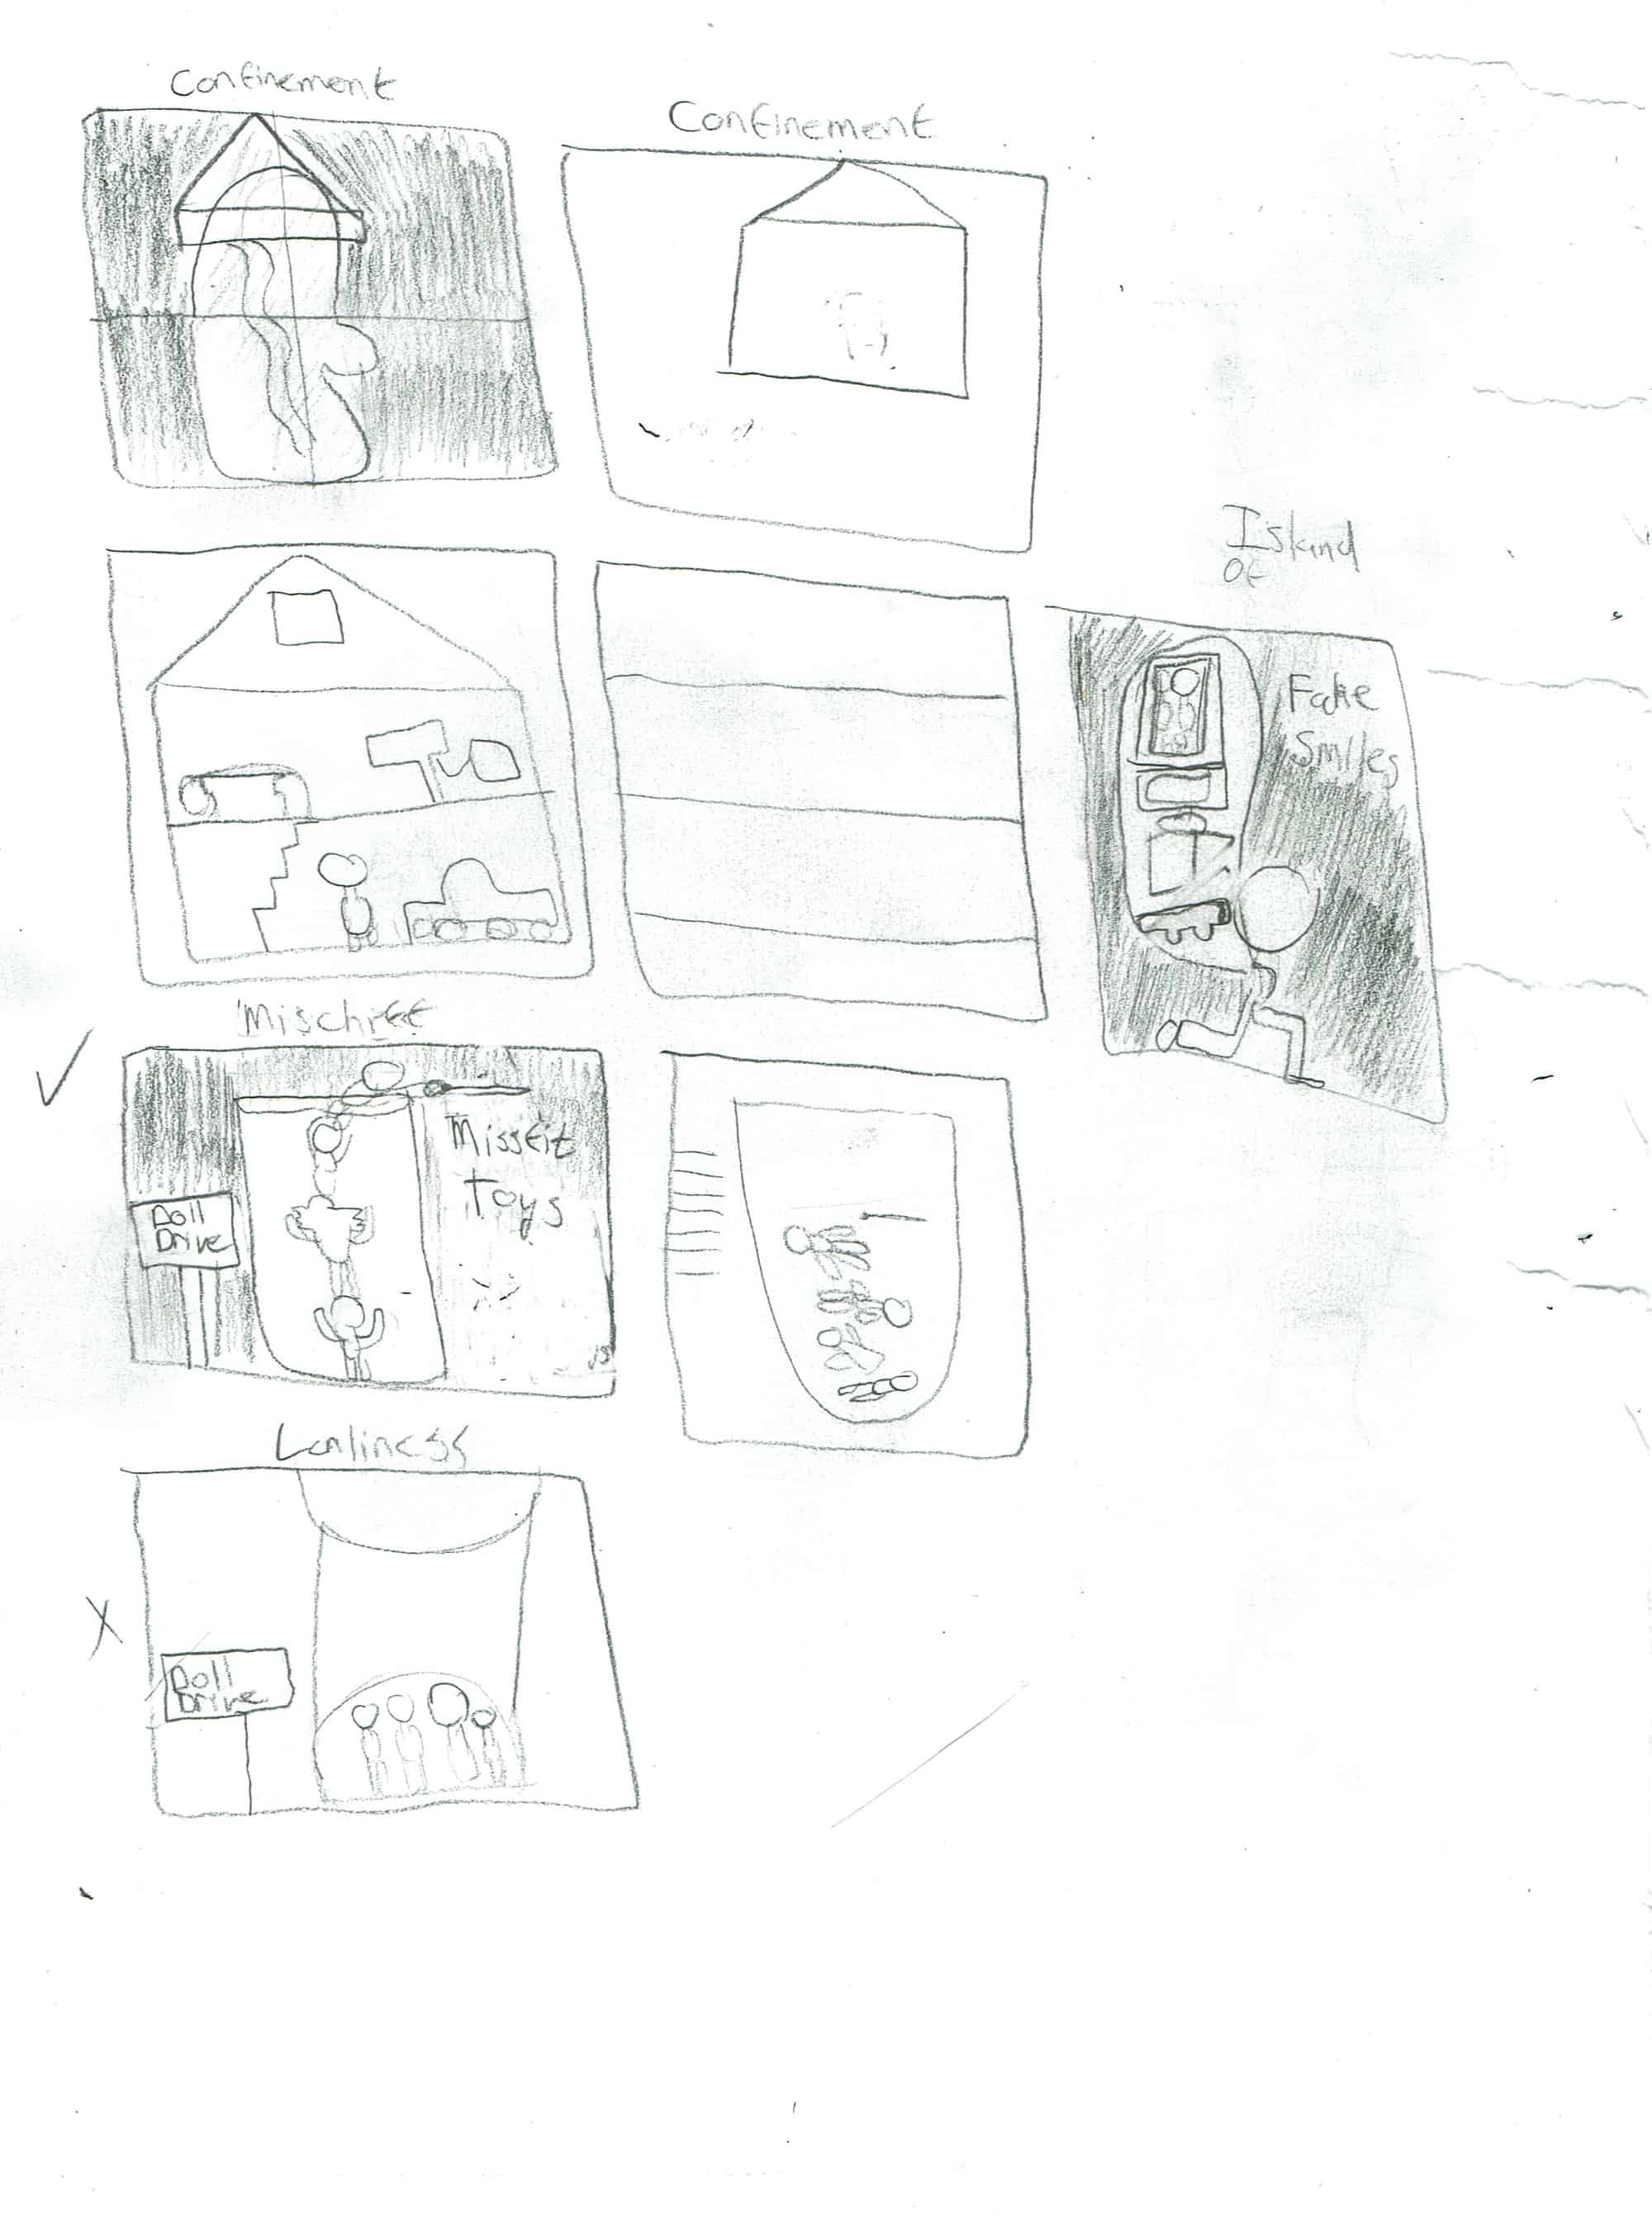 Confinement
Confinement
Island
of
Fake
Smiles
Mischief
Missfit
Toys
Doll
Drive
Lonliness
Doll
Drive